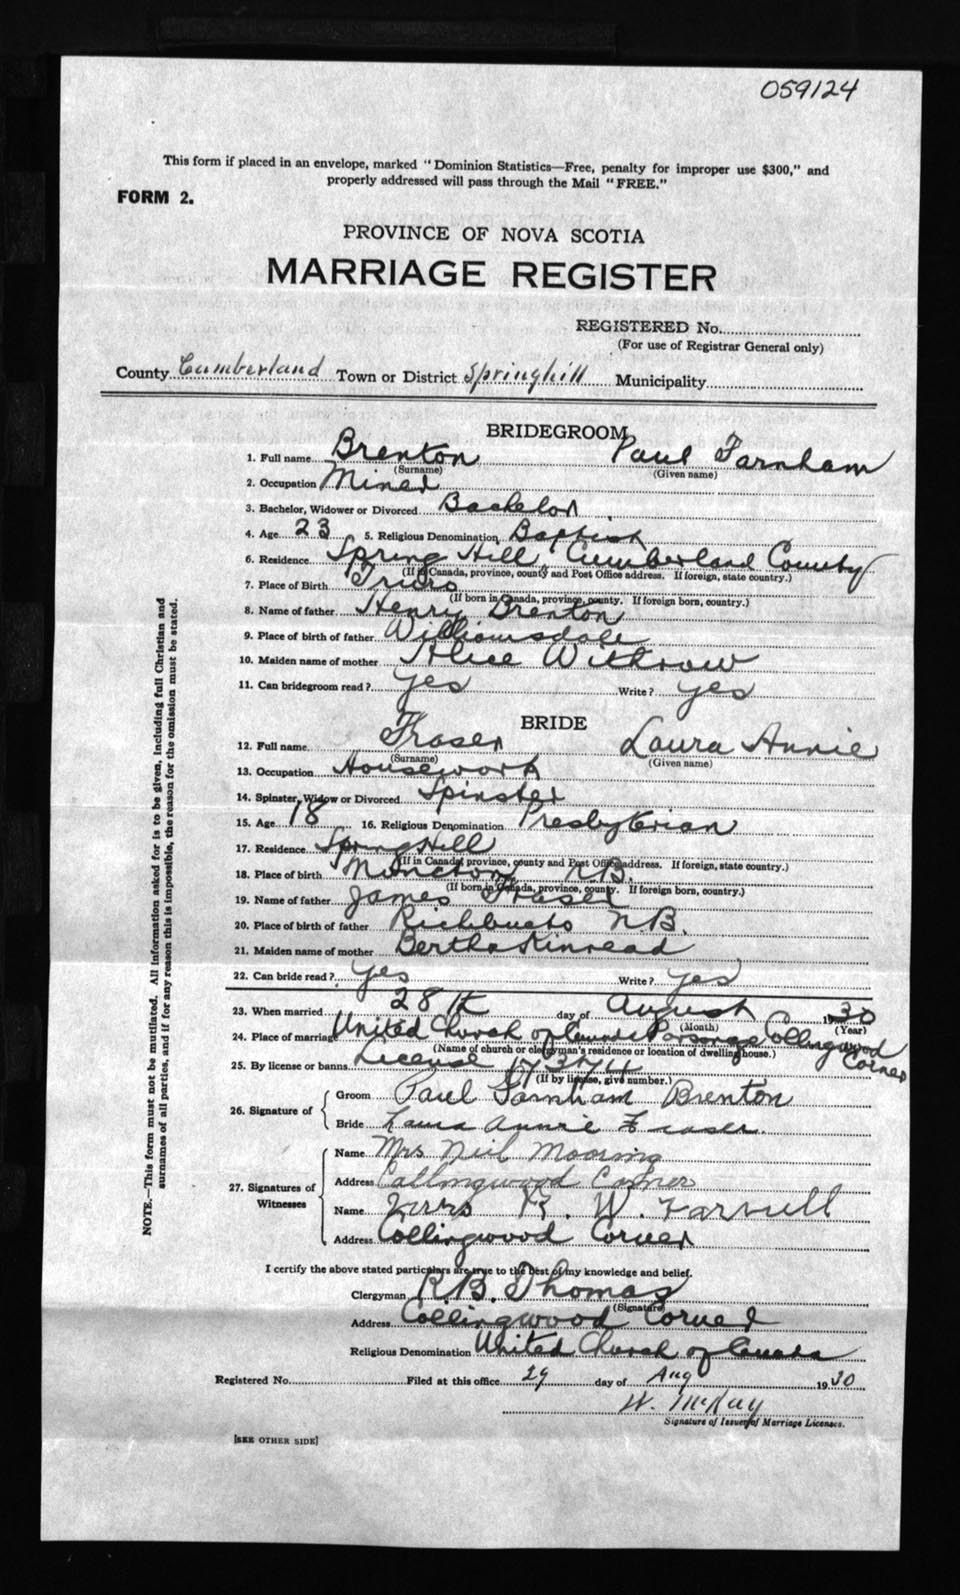 059124
This form if placed in an envelope, marked "Dominion Statistics—Free, penalty for improper use $300," and
properly addressed will pass through the Mail "FREE."
FORM 2.
PROVINCE OF NOVA SCOTIA
MARRIAGE REGISTER
REGISTERED No.
(For use of Registrar General only)
County Cumberland Town or District Springhill Municipality
BRIDEGROOM
1. Full name Brenton Paul Farnham
(Surname) (Given name)
2. Occupation Miner
3. Bachelor, Widower or Divorced Bachelor
4. Age 23 5. Religious Denomination Baptist
6. Residence Spring Hill Cumberland County
(If in Canada, province, county and Post Office address. If foreign, state country.)
7. Place of Birth Truro
(If born in Canada, province, county. If foreign born, country.)
8. Name of father Henry Brenton
9. Place of birth of father Williamsdale
10. Maiden name of mother Alice Withrow
11. Can bridegroom read? yes Write? yes
BRIDE
12. Full name Fraser Laura Annie
(Surname) (Given name)
13. Occupation Housework
14. Spinster, Widow or Divorced Spinster
15. Age 18 16. Religious Denomination Presbyterian
17. Residence Spring Hill
(If in Canada, province, county and Post Office address. If foreign, state country.)
18. Place of birth Moncton N.B.
(If born in Canada, province, county. If foreign born, country.)
19. Name of father James Fraser
20. Place of birth of father Richbucto N.B.
21. Maiden name of mother Bertha Kinread
22. Can bride read? yes Write? yes
23. When married 28th day of August 1930
(Month) (Year)
24. Place of marriage United Church of Canada Parsonage Collingwood Corner
(Name of church or clergyman's residence or location of dwelling house.)
25. By license or banns License
(If by license, give number.)
26. Signature of
Groom Paul Farnham Brenton
Bride Laura Annie Fraser
27. Signatures of Witnesses
Name Mrs Neil Mooring
Address Collingwood Corner
Name R. W. Farnell
Address Collingwood Corner
I certify the above stated particulars are true to the best of my knowledge and belief.
Clergyman R.B. Thomas
(Signature)
Address Collingwood Corner
Religious Denomination United Church of Canada
Registered No. Filed at this office 29 day of Aug 1930
W. McKay
Signature of Issuer of Marriage Licenses.
[SEE OTHER SIDE]
NOTE.—This form must not be mutilated. All information asked for is to be given, including full Christian and
surnames of all parties, and if for any reason this is impossible, the reason for the omission must be stated.